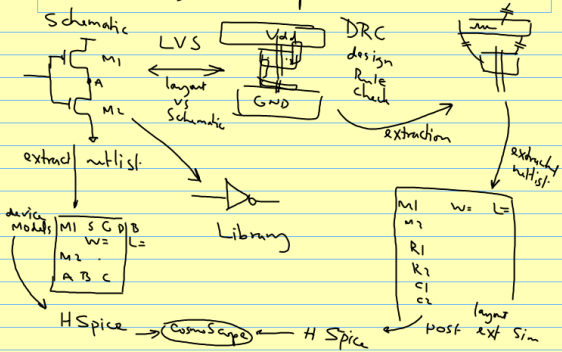 Schematic
LVS
layout
vs
Schematic
Vdd
GND
DRC
design
Rule
check
M1
A
M2
extraction
extract netlist
extracted
netlist
Library
device
models
M1 S G D B
W= L=
M2 .
A B C
M1 W= L=
M2
R1
R2
C1
C2
HSpice
CosmoScope
HSpice
post layout ext sim